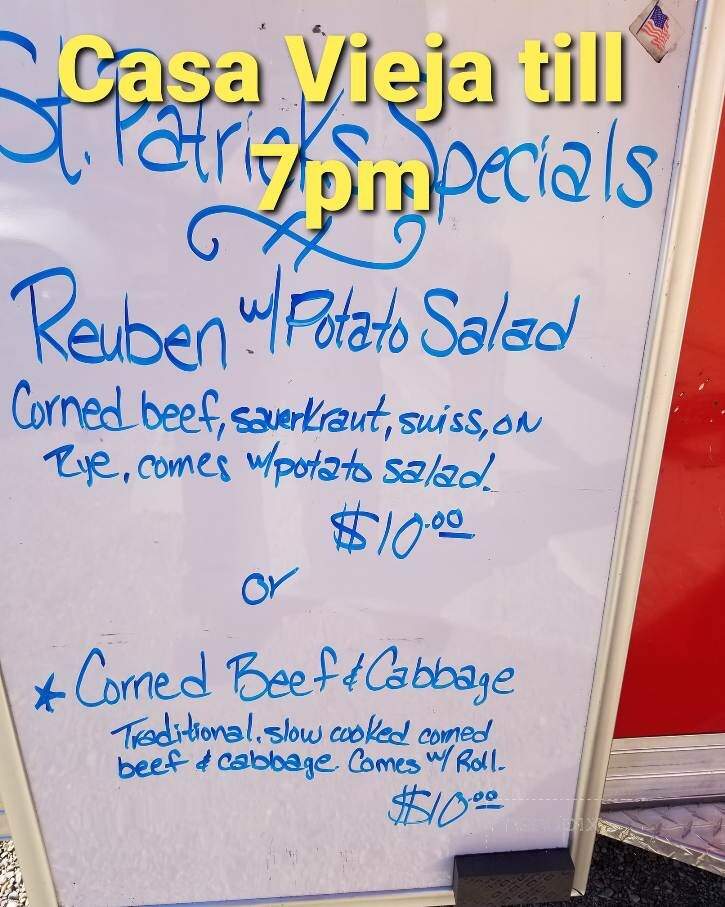 Casa Vieja till
7pm
St. Patrick's Specials
Reuben w/ Potato Salad
Corned beef, sauerkraut, suiss, on
Rye, comes w/potato salad.
$10.00
or
* Corned Beef & Cabbage
Traditional, slow cooked corned
beef & cabbage. Comes w/ Roll.
$10.00